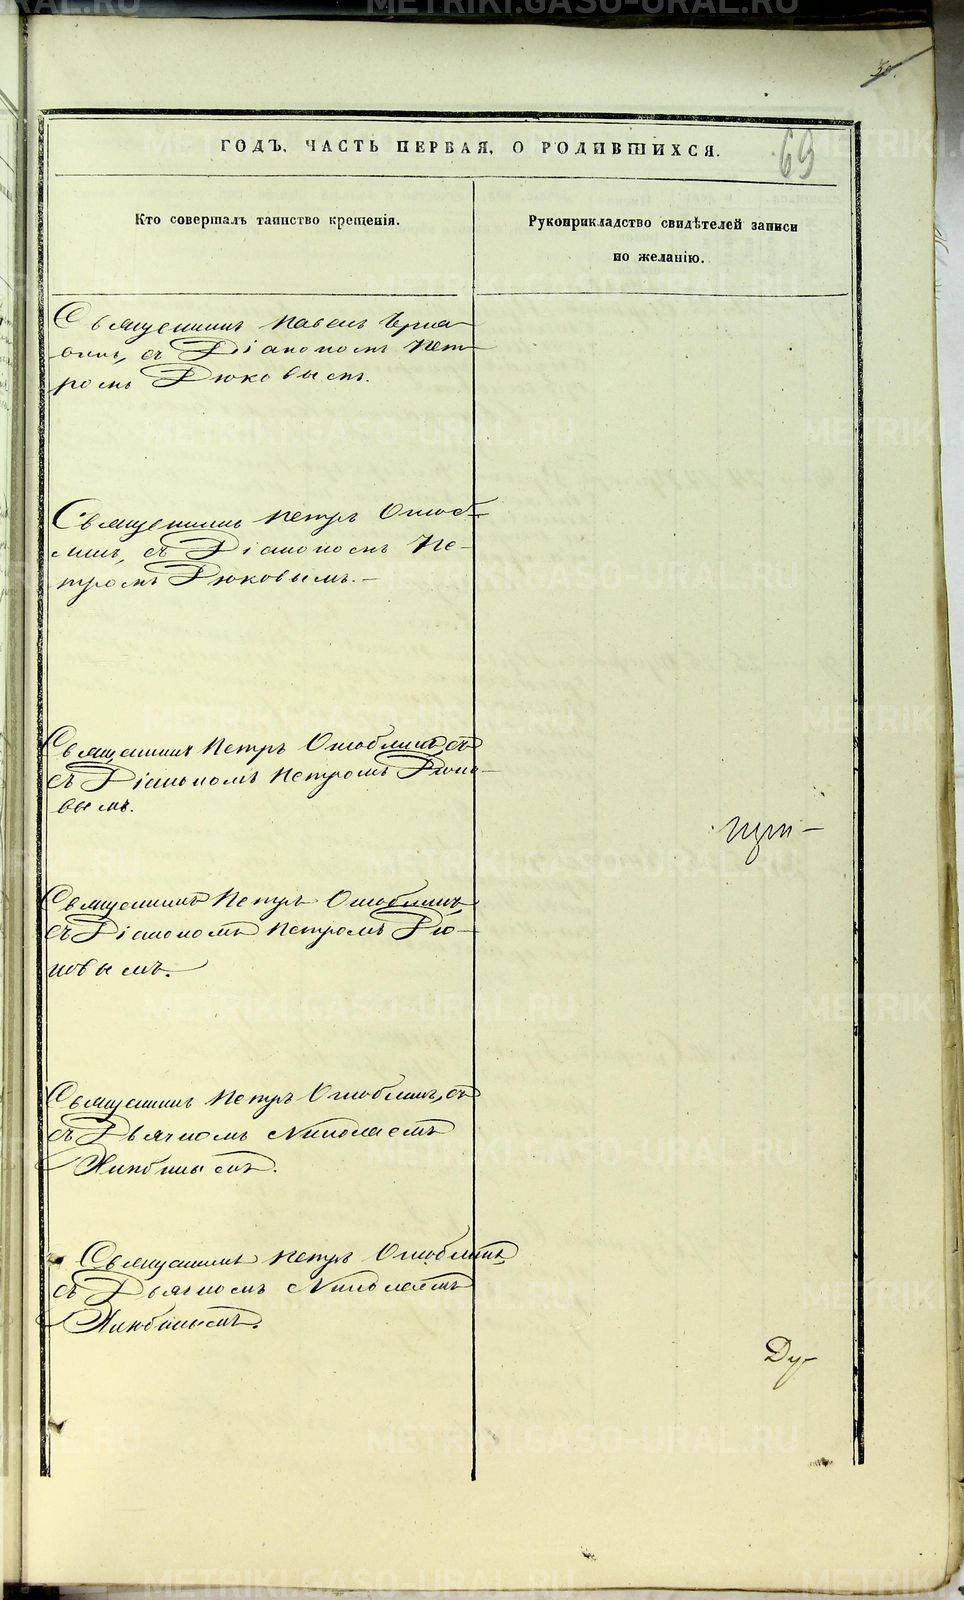 50.
ГОДЪ, ЧАСТЬ ПЕРВАЯ, О РОДИВШИХСЯ.
69
Кто совершалъ таинство крещенія.
Рукоприкладство свидѣтелей записи
по желанію.
Священникъ Павелъ
съ Діакономъ Пет-
ромъ Дюковымъ.
Священникъ Петръ Оглоб-
линъ, съ Діакономъ Пе-
тромъ Дюковымъ.—
Священникъ Петръ Оглоблинъ съ
съ Діакономъ Петромъ Дюко-
вымъ.
Священникъ Петръ Оглоблинъ,
съ Діакономъ Петромъ Дю-
ковымъ.
Священникъ Петръ Оглоблинъ, съ
съ Дьячкомъ Николаемъ
Священникъ Петръ Оглоблинъ,
съ Дьячкомъ Николаемъ
Ду-
METRIKI.GASO-URAL.RU